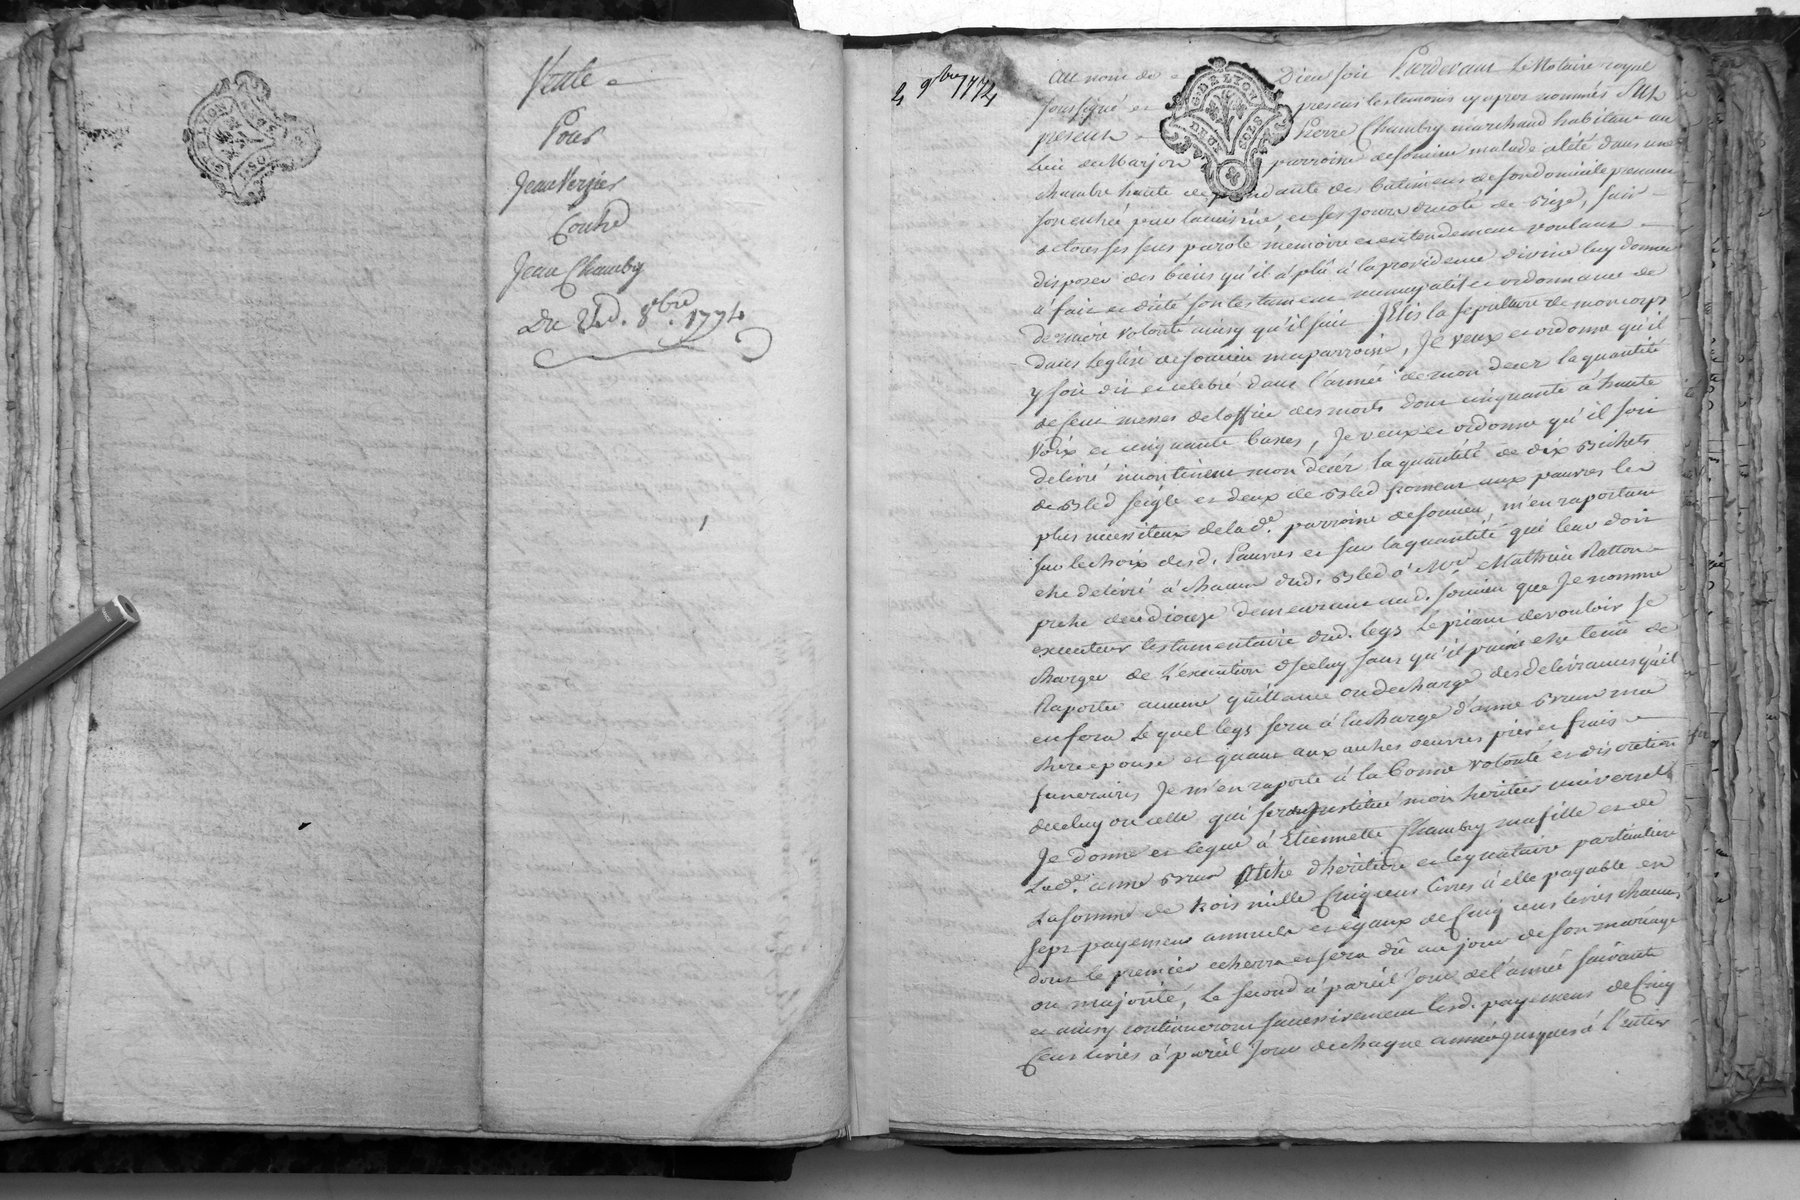 Vente
Pour
Jean Verzier
Contre
Jean Chambry
Du 2d. 8bre 1774
4 9bre 1774
G.D.E LYON
Au nom de Dieu soit Pardevant Le Notaire royal
soussigné et presens les temoins cy apres nommés fut
present Pierre Chambry marchand habitant au
Lieu de Marjon parroisse de soucieu malade alité dans une
chambre haute dependante des batimens de son domicile prenant
son entrée et ses jours du coté de Bize, sain
de tous ses sens parole memoire et entendement voulant
disposer des biens qu'il a plû à la providence divine luy donner
à fait et dicté son testament nuncupatif et ordonnance de
derniere volonté ainsy qu'il suit Jelis la sepulture de mon corps
dans Leglise de soucieu ma parroisse, Je veux et ordonne qu'il
y soit dit et celebré dans l'année de mon decer la quantité
de cent messes de l'office des morts dont cinquante à haute
voix et cinquante basses, Je veux et ordonne qu'il soit
delivré incontinent mon decer la quantité de dix Bichets
de Bled seigle et deux de Bled froment aux pauvres les
plus necessiteux de lade. parroisse de soucieu, m'en raportant
sur le choix desd. Pauvres et sur la quantité qui leur doit
etre delivré à chacun dud. Bled à Mre Mathieu Ratton
pretre du diocese demeurant aud. soucieu que Je nomme
executeur testamentaire dud. legs Le priant de vouloir se
charger de L'execution d'iceluy sans qu'il puisse etre tenû de
Raporter aucune quittance ou decharge des delivrances qu'il
en fera Lequel legs sera à la charge d'anne Brun ma
chere epouse et quant aux autres oeuvres pies et frais
funeraires Je m'en raporte à la bonne volonté et discretion
de celuy ou celle qui sera institué mon heritier universel
Je donne et legue à Etiennette Chambry ma fille et de
Lade. anne Brun à titre d'heritiere et legataire particuliere
La somme de trois mille Cinq cens livres à elle payable en
sept payemens annuels et egaux de Cinq cens livres chacun,
dont le premier echerra et sera dû au jour de son mariage
ou majorité, Le second à pareil Jour de l'année suivante
et ainsy continueront successivement lesd. payemens de Cinq
Cens livres à pareil Jour de chaque année jusques à l'entier